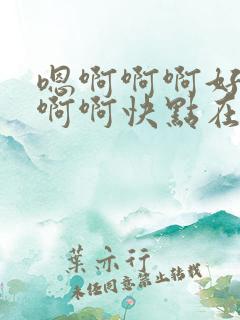 嗯啊啊啊好
啊啊快點在
葉亦行
未經同意禁止轉載